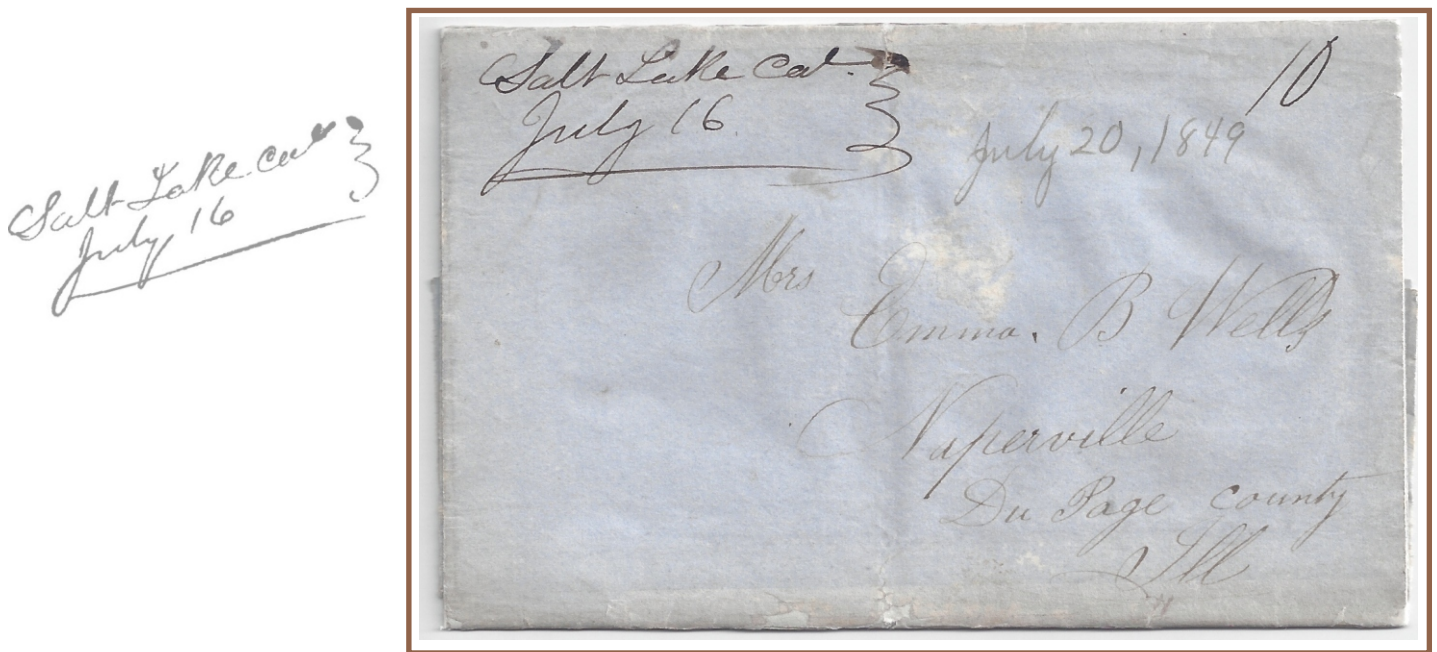 Salt Lake Cal
July 16
Salt Lake Cal.
July 16
10
July 20, 1849
Mrs
Emma. B Wells
Naperville
Du Page county
Ill